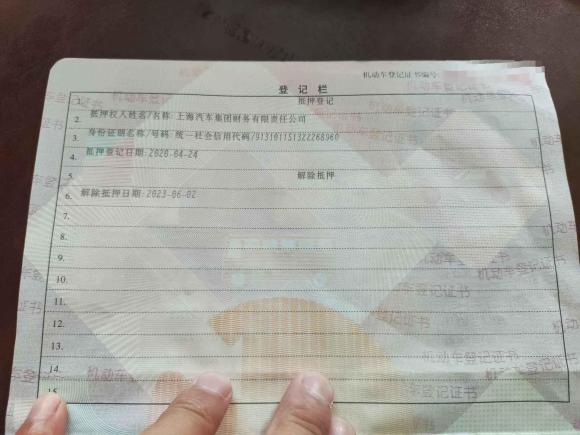 机动车登记证书编号:
登记栏
1. 抵押登记
2. 抵押权人姓名/名称:上海汽车集团财务有限责任公司
3. 身份证明名称/号码:统一社会信用代码/913101151322268960
4. 抵押登记日期:2020-04-24
5. 解除抵押
6. 解除抵押日期:2023-06-02
7.
8.
9.
10.
11.
12.
13.
14.
15.